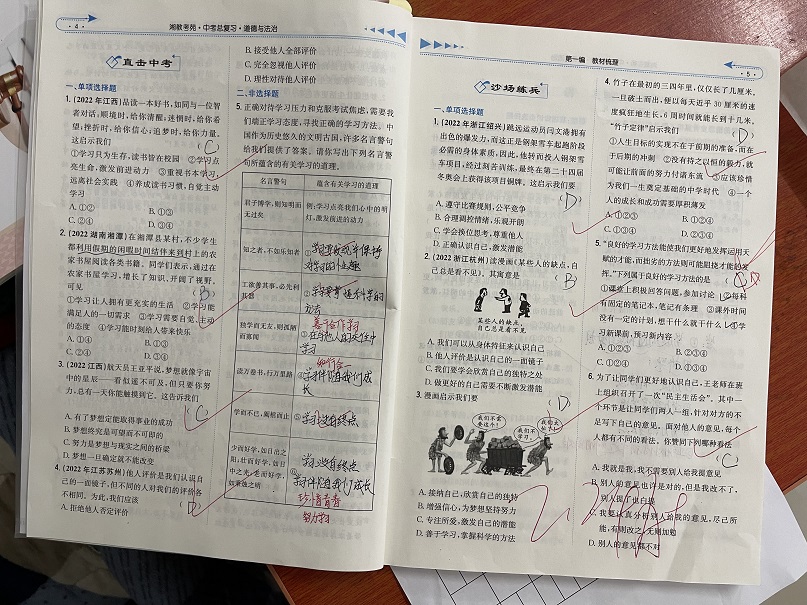 · 4 ·
湘教考苑·中考总复习·道德与法治
直击中考
一、单项选择题
1.(2022年江西)品读一本好书,如同与一位智
者对话,顺境时,给你清醒;迷惘时,给你希
望;挫折时,给你信心;追梦时,给你力量。
这启示我们
(C)
①学习只为生存,读书皆在校园 ②学习点
亮生命,激发前进动力 ③重视书本学习,
远离社会实践 ④养成读书习惯,自觉主动
学习
A.①② B.①③
C.②④ D.③④
2.(2022湖南湘潭)在湘潭县某村,不少学生
都利用假期的闲暇时间结伴来到村上的农
家书屋阅读各类书籍。同学们表示,通过在
农家书屋学习,增长了知识,开阔了视野。
可见
(B)
①学习让人拥有更充实的生活 ②学习能
满足人的一切需求 ③学习需要自觉、主动
的态度 ④学习能时刻给人带来快乐
A.①④ B.①③
C.②③ D.②④
3.(2022江西)航天员王亚平说,梦想就像宇宙
中的星辰——看似遥不可及,但只要你努
力,总有一天你能触摸到它。这告诉我们
(C)
A.有了梦想定能取得事业的成功
B.梦想终究是可望而不可即的
C.努力是梦想与现实之间的桥梁
D.梦想一旦确定就不能改变
4.(2022年江苏苏州)他人评价是我们认识自
己的一面镜子,但不同的人对我们的评价各
不相同。为此,我们应该
(D)
A.拒绝他人否定评价
B.接受他人全部评价
C.完全忽视他人评价
D.理性对待他人评价
二、非选择题
5.正确对待学习压力和克服考试焦虑,需要我
们端正学习态度,寻找正确的学习方法。中
国作为历史悠久的文明古国,许多名言警句
给我们提供了答案。请你写出下列名言警
句所蕴含的有关学习的道理。
名言警句 蕴含有关学习的道理
君子博学,则知明而
无过矣
例:学习点亮我们心中的明
灯,激发前进的动力
知之者,不如乐知者
①学习要发现并保持
对学习的兴趣
工欲善其事,必先利
其器
②学习要掌握科学的
方法
独学而无友,则孤陋
而寡闻
善于合作学习
③在与他人的交往中
学习
读万卷书,行万里路
知行合一
④学习伴随我们成
长
学而不已,阖棺而止
⑤学习没有终点
少而好学,如日出之
阳;壮而好学,如日
中之光;老而好学,
如秉烛之明
⑥学习没有终点
学习伴随我们成长
珍惜青春
努力学习
第一编 教材梳理
· 5 ·
沙场练兵
一、单项选择题
1.(2022年浙江绍兴)跳远运动员闫文港拥有
出色的爆发力,而这正是钢架雪车起跑阶段
必需的身体素质,因此,他转而投入钢架雪
车项目,经过刻苦训练,最终在第二十四届
冬奥会上获得该项目铜牌。这启示我们要
(D)
A.遵守比赛规则,公平竞争
B.合理调控情绪,乐观开朗
C.学会换位思考,尊重他人
D.正确认识自己,激发潜能
2.(2022浙江杭州)读漫画(某些人的缺点,自
己总是看不见)。其寓意是
(B)
某些人的缺点,
自己总是看不见
A.我们可以从身体特征来认识自己
B.他人评价是认识自己的一面镜子
C.我们要学会欣赏自己的独特之处
D.做更好的自己需要不断激发潜能
3.漫画启示我们要
(D)
我们不需
要这个!
我们不
学习。
我们太
忙了!
A.接纳自己,欣赏自己的独特
B.增强信心,为梦想坚持努力
C.专注所爱,激发自己的潜能
D.善于学习,掌握科学的方法
4.竹子在最初的三四年里,仅仅长了几厘米。
一旦破土而出,便以每天近乎30厘米的速
度疯狂地生长,6周时间就能长到十几米。
“竹子定律”启示我们
(D)
①人生目标的实现不在于前期的准备,而在
于后期的冲刺 ②没有持之以恒的毅力,就
可能让前面的努力付诸东流 ③应该珍惜
为我们一生奠定基础的中学时代 ④一个
人的成长和成功需要厚积薄发
A.①②③ B.①②④
C.①③④ D.②③④
5.“良好的学习方法能使我们更好地发挥运用天
赋的才能,而拙劣的方法则可能阻挠才能的发
挥。”下列属于良好的学习方法的是
①课堂上积极回答问题,参加讨论 ②每科
有固定的笔记本,笔记有条理 ③课外时间
没有一定的计划,想干什么就干什么 ④学
习新课前,预习新内容
A.①②③ B.②③④
C.①②④ D.①③④
6.为了让同学们更好地认识自己,王老师在班
上组织召开了一次“民主生活会”。其中一
个环节是让同学们两人一组,针对对方的不
足写下自己的意见。面对他人的意见,每个
人都有不同的看法。你赞同下列哪种看法
(C)
A.我就是我,我不需要别人给我提意见
B.别人的意见也许是对的,但是我改不了,
别人提了也白提
C.我要认真分析别人给我的意见,尽己所
能,有则改之,无则加勉
D.别人的意见都不对